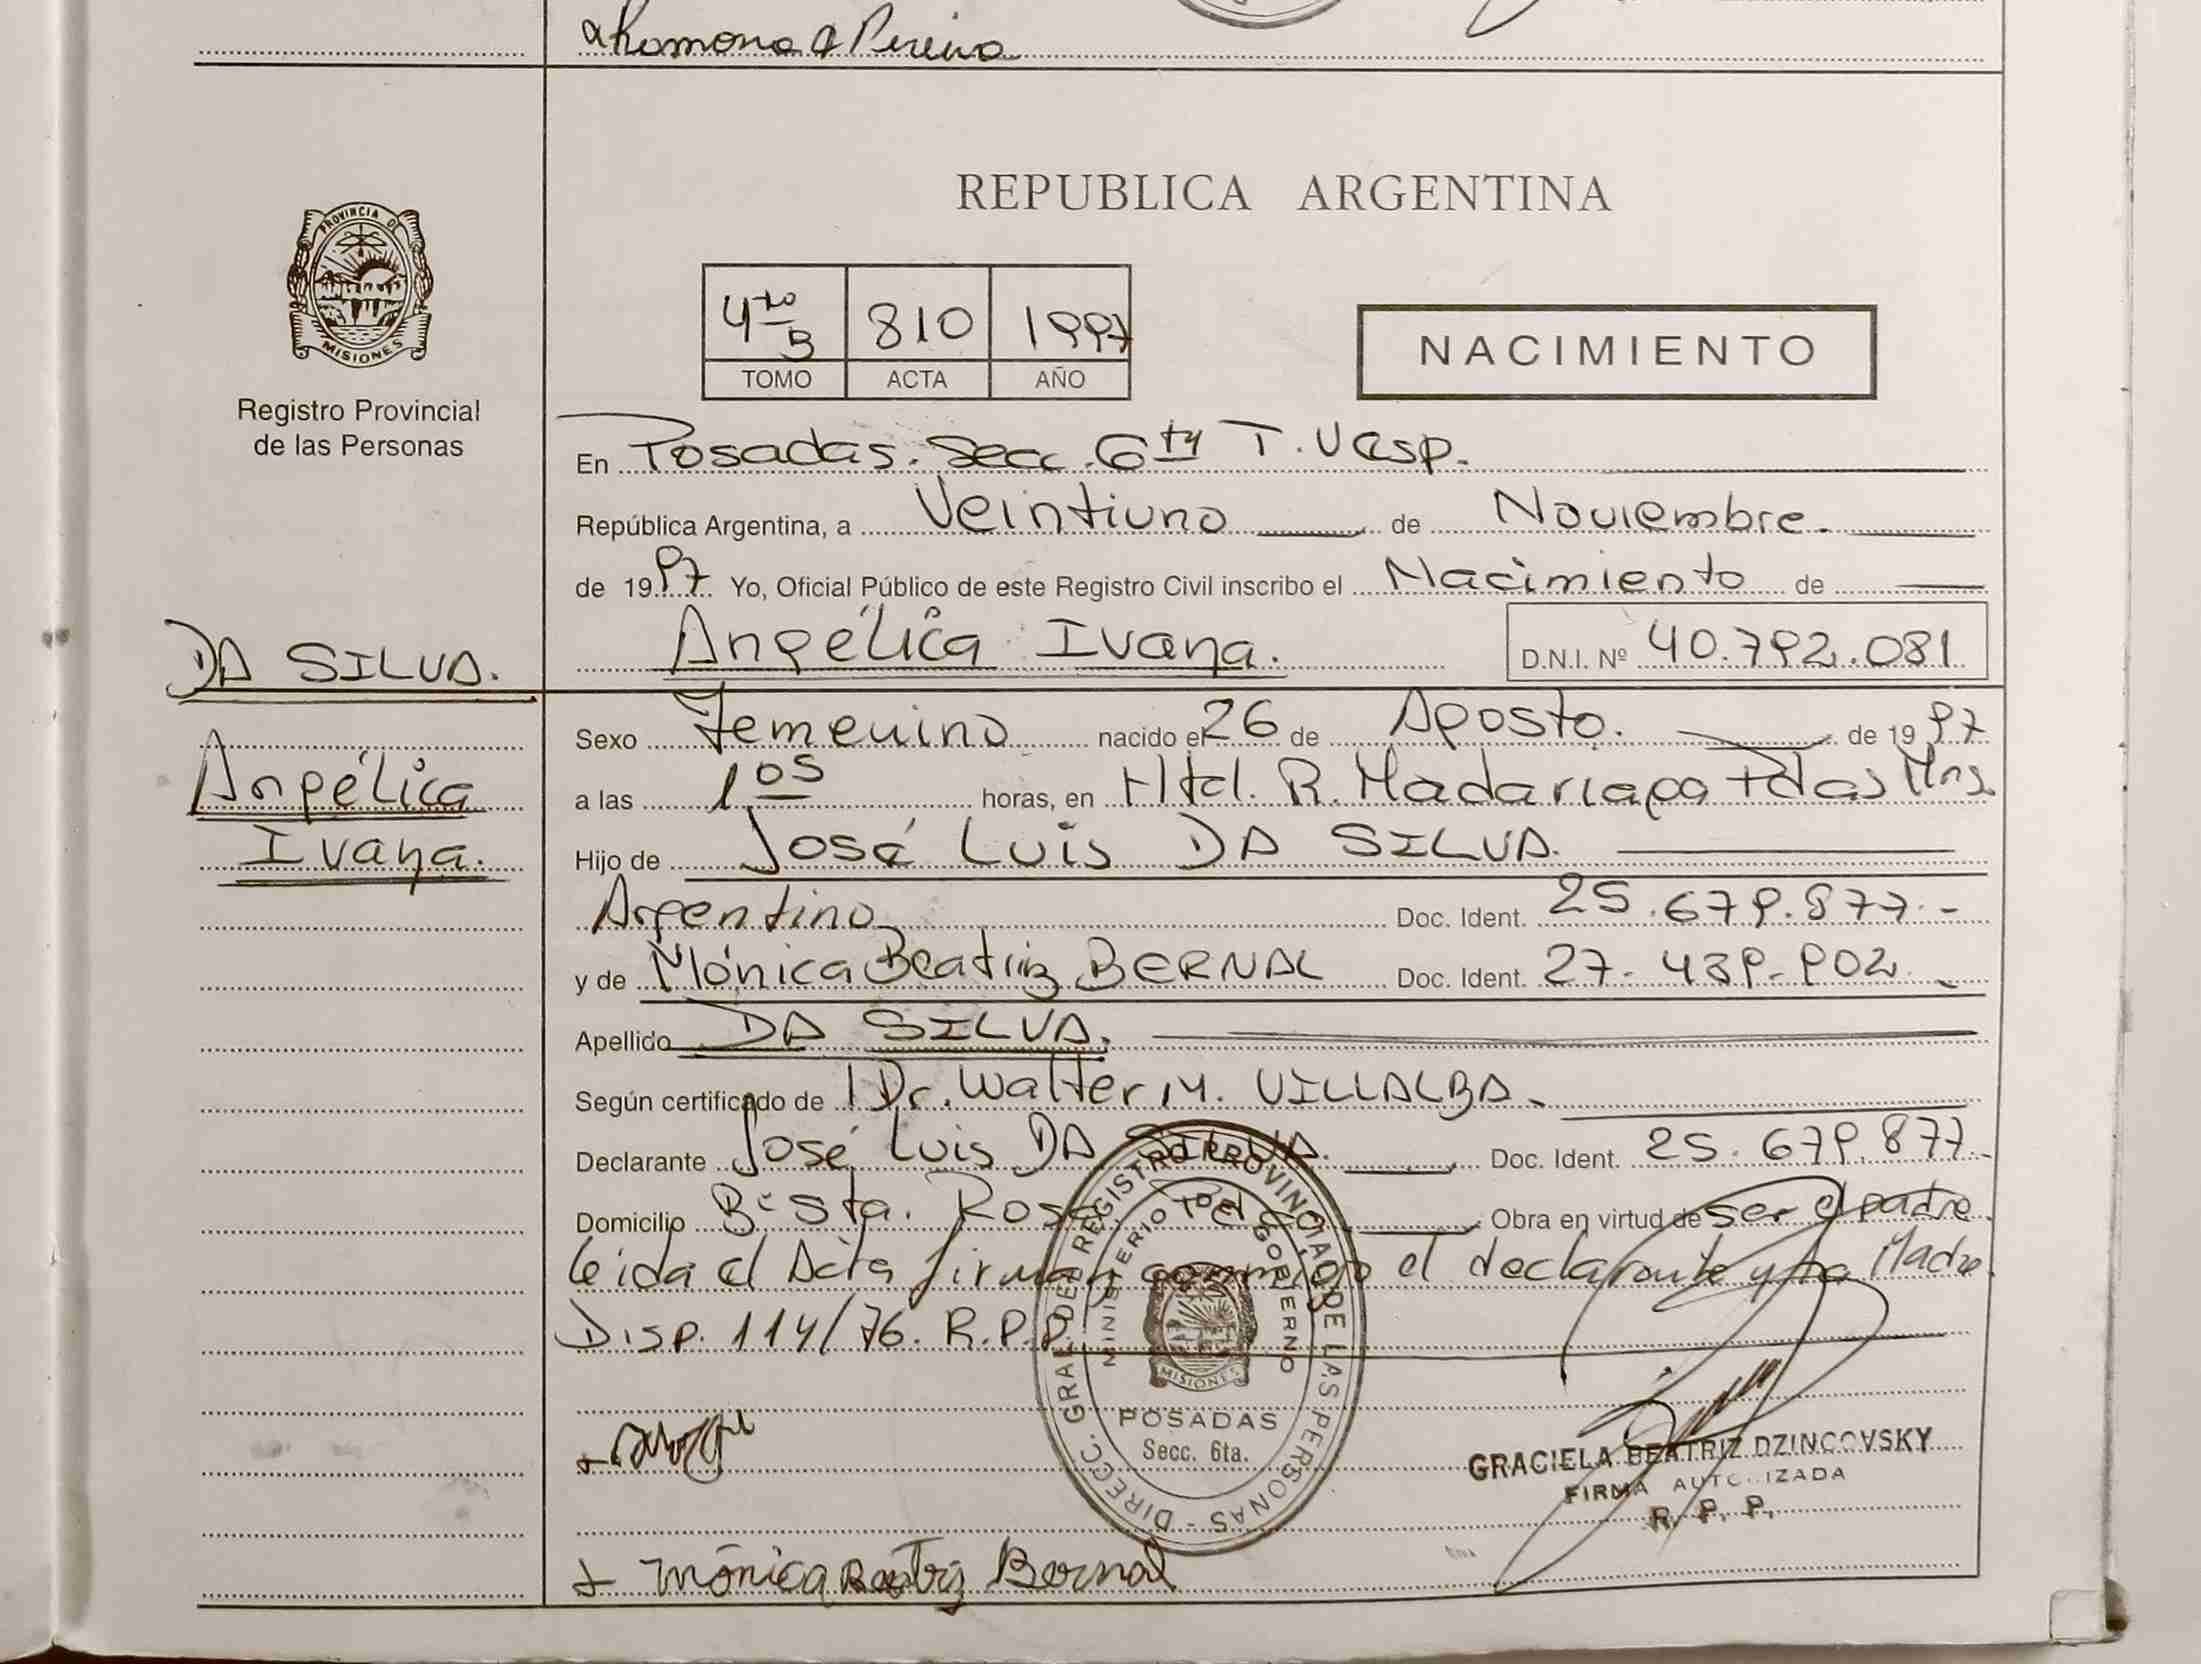 Ramona A Pereira
REPUBLICA ARGENTINA
PROVINCIA D
MISIONES
Registro Provincial
de las Personas
4to B 810 1997
TOMO ACTA AÑO
NACIMIENTO
En Posadas. Secc. 6ta T. Vesp.
República Argentina, a Veintiuno de Noviembre.
de 1997 Yo, Oficial Público de este Registro Civil inscribo el Nacimiento de
Angélica Ivana. D.N.I. Nº 40.792.081
DA SILVA.
Angélica
Ivana.
Sexo Femenino nacido el 26 de Agosto. de 1997
a las 1os horas, en Htal. R. Madariaga Pdas Mns
Hijo de José Luis DA SILVA.
Argentino Doc. Ident. 25.679.877.-
y de Mónica Beatriz BERNAL Doc. Ident. 27.439.902.
Apellido DA SILVA.
Según certificado de Dr. Walter M. VILLALBA.
Declarante José Luis DA SILVA. Doc. Ident. 25.679.877.
Domicilio Bº Sta. Rosa Obra en virtud de ser el padre
leida el Acta firman conmigo el declarante y la Madre.
Disp. 114/76. R.P.P.
DIRECC. GRAL. DEL REGISTRO PROVINCIAL DE LAS PERSONAS -
MINISTERIO DE GOBIERNO
MISIONES
POSADAS
Secc. 6ta.
GRACIELA BEATRIZ DZINCOVSKY
FIRMA AUTORIZADA
R. P. P.
Mónica Beatriz Bernal